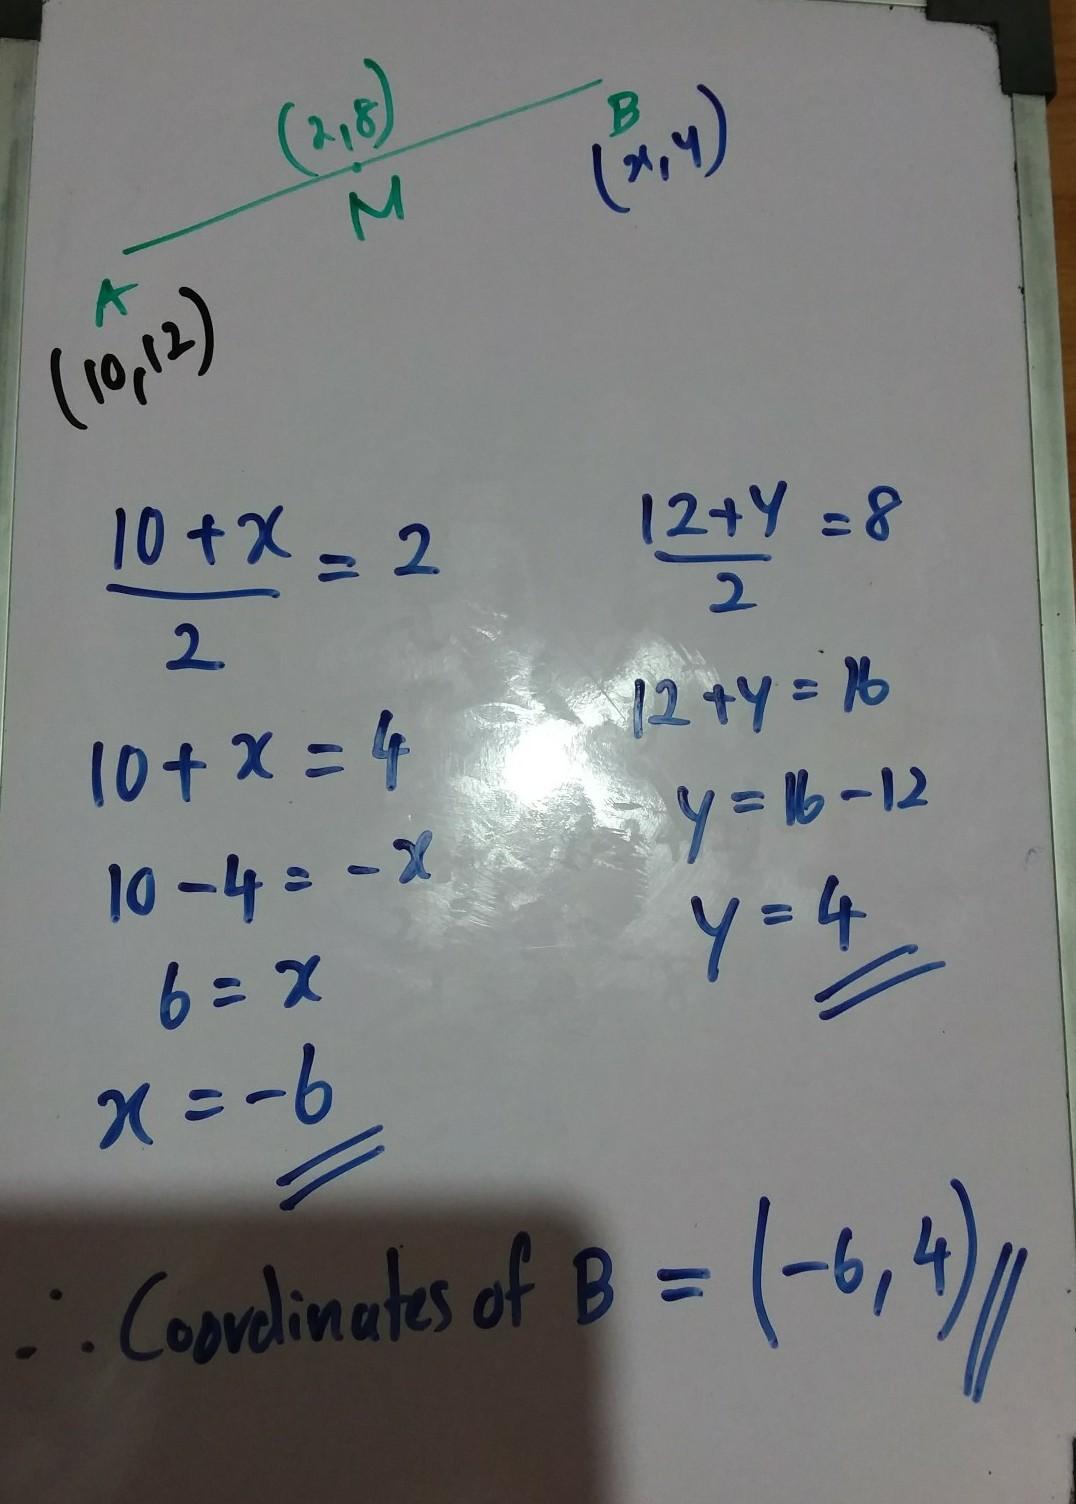 (2,8)
B
(x,y)
M
A
(10,12)
10+x/2 = 2
10+x=4
10-4=-x
6=x
x=-6
12+y/2 =8
12+y=16
y=16-12
y=4
∴ Coordinates of B = (-6,4)